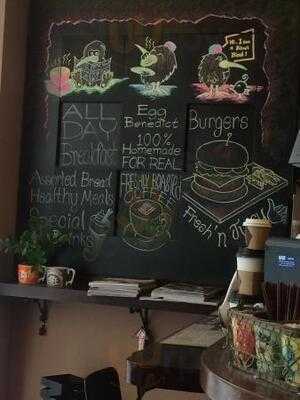 Hi, I am
a Kiwi
Bird!
ALL
DAY
Breakfast
Assorted Bread
Healthy Meals
Special
Drinks
Egg
Benedict
100%
Homemade
FOR REAL
FRESHLY ROASTED
COFFEE
Burgers
Fresh 'n Juicy